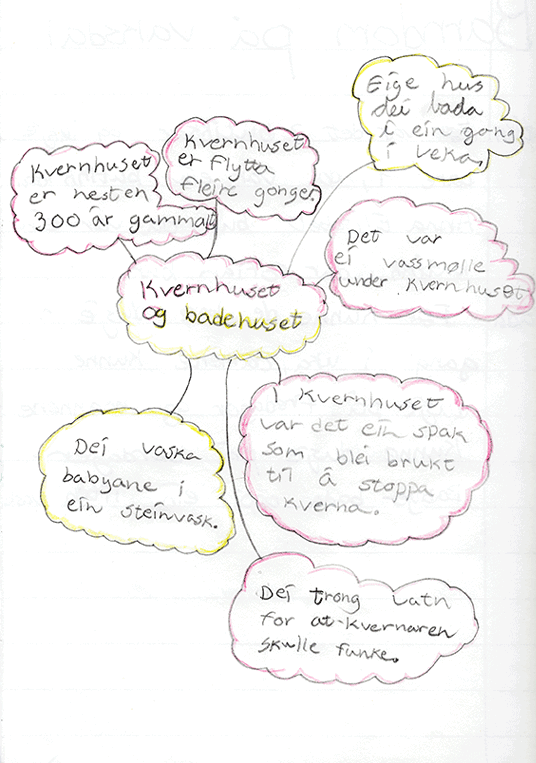 Eige hus
dei bada
i ein gong
i veka.
Kvernhuset
er flytta
fleire gonger.
Kvernhuset
er nesten
300 år gammalt
Det var
ei vassmølle
under kvernhuset
Kvernhuset
og badehuset
I kvernhuset
var det ein spak
som blei brukt
til å stoppa
kverna.
Dei vaska
babyane i
ein steinvask.
Dei trong vatn
for at kvernaren
skulle funke.